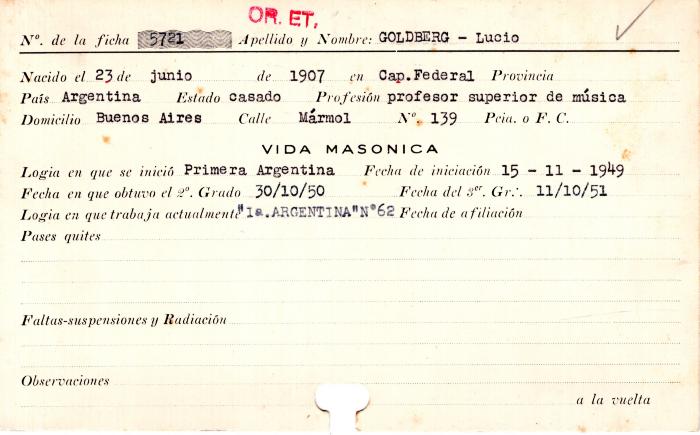 OR. ET.
Nº. de la ficha 5721 Apellido y Nombre: GOLDBERG - Lucio
Nacido el 23 de junio de 1907 en Cap.Federal Provincia
País Argentina Estado casado Profesión profesor superior de música
Domicilio Buenos Aires Calle Mármol Nº. 139 Pcia. o F. C.
VIDA MASONICA
Logia en que se inició Primera Argentina Fecha de iniciación 15 - 11 - 1949
Fecha en que obtuvo el 2º. Grado 30/10/50 Fecha del 3er. Gr∴ 11/10/51
Logia en que trabaja actualmente "1a.ARGENTINA"Nº62 Fecha de afiliación
Pases quites
Faltas-suspensiones y Radiación
Observaciones
a la vuelta